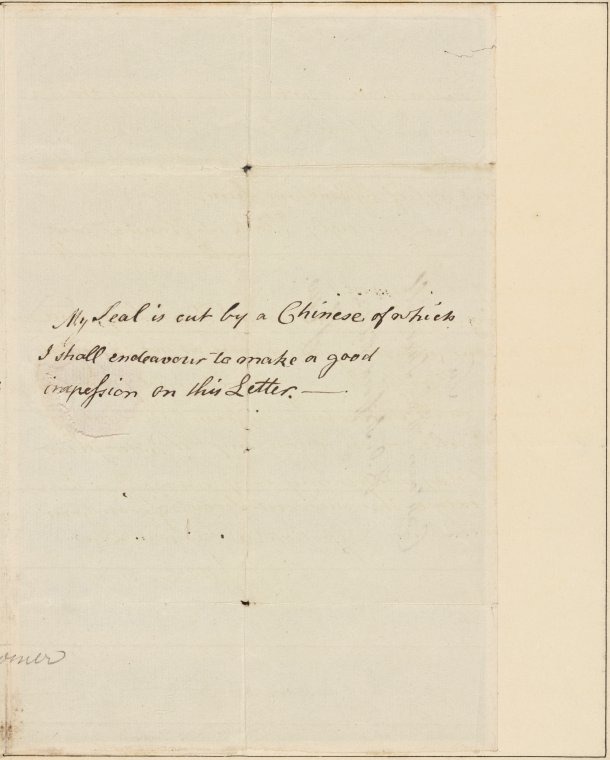 My Seal is cut by a Chinese, of which
I shall endeavour to make a good
impession on this Letter. —